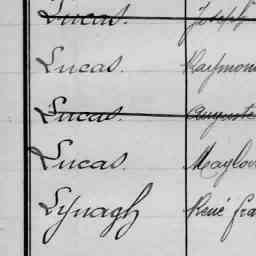 Lucas. Joseph
Lucas. Raymon
Lucas. Auguste
Lucas.
Lynagh René fra